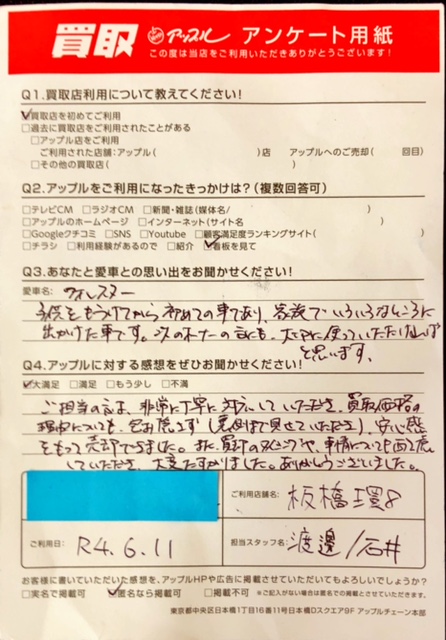 買取 アップル アンケート用紙
この度は当店をご利用いただきありがとうございます!
Q1.買取店利用について教えてください!
買取店を初めてご利用
過去に買取店をご利用されたことがある
アップル店をご利用
ご利用された店舗:アップル( )店 アップルへのご売却( 回目)
その他の買取店( )
Q2.アップルをご利用になったきっかけは?(複数回答可)
テレビCM ラジオCM 新聞・雑誌(媒体名/ )
アップルのホームページ インターネット(サイト名 )
Googleクチコミ SNS Youtube 顧客満足度ランキングサイト( )
チラシ 利用経験があるので 紹介 看板を見て
Q3.あなたと愛車との思い出をお聞かせください!
愛車名:フォレスター
子供をもうけてから初めての車であり、家族でいろいろなところに
出かけた車です。次のオーナーの方にも、大切に使っていただければ
と思います。
Q4.アップルに対する感想をぜひお聞かせください!
大満足 満足 もう少し 不満
ご担当の方は、非常に丁寧に対応していただき、買取価格の
理由についても包み隠さず(裏側まで見せていただき)安心感
をもって売却できました。また、買取のタイミングや、事情についても
していただき、大変たすかりました。ありがとうございました。
ご利用店舗名: 板橋環8
ご利用日: R4.6.11
担当スタッフ名: 渡邊/石井
お客様に書いていただいた感想を、アップルHPや広告に掲載させていただいてもよろしいでしょうか?
実名で掲載可 匿名なら掲載可 掲載不可 ※ご記入がない場合は匿名での掲載とさせていただきます。
東京都中央区日本橋1丁目16番11号日本橋Dスクエア9F アップルチェーン本部